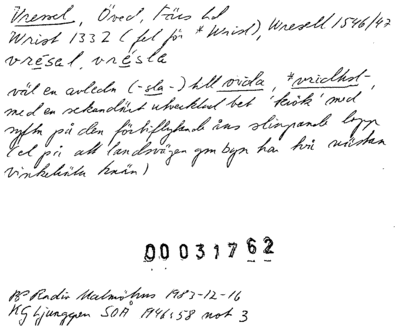 Vressel, Öved, Färs hd
Wrist 1332 (fel för *Wrisl), Wresell 1546/47
vrésal, vrésla
väl en avledn (-sla-) till vrida, *vridhsl-,
med en sekundärt utvecklad bet 'krök' med
syftn på den förbiflytande åns slingrande lopp
(el på att landsvägen gm byn har två nästan
vinkelräta knän)
00031762
Radio Malmöhus 1983-12-16
KG Ljunggren SOÅ 1946:58 not 3